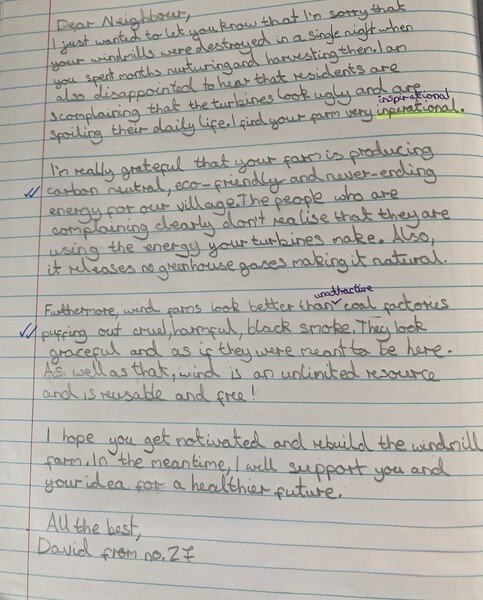 Dear Neighbour,
I just wanted to let you know that I'm sorry that
your windmills were destroyed in a single night when
you spent months nurturing and harvesting them. I am
also disappointed to hear that residents are
complaining that the turbines look ugly and are
inspirational
spoiling their daily life. I find your farm very inperational.
I'm really grateful that your farm is producing
carbon neutral, eco-friendly and never-ending
energy for our village. The people who are
complaining clearly don't realise that they are
using the energy your turbines make. Also,
it releases no greenhouse gases making it natural.
unattractive
Futhermore, wind farms look better than coal factories
puffing out cruel, harmful, black smoke. They look
graceful and as if they were meant to be here.
As well as that, wind is an unlimited resource
and is reusable and free!
I hope you get motivated and rebuild the windmill
farm. In the meantime, I will support you and
your idea for a healthier future.
All the best,
David from no.27